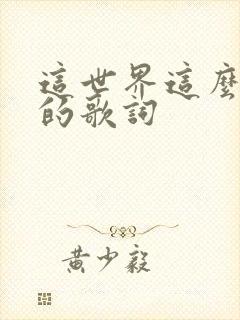 這世界這麼
的歌詞
黃少毅